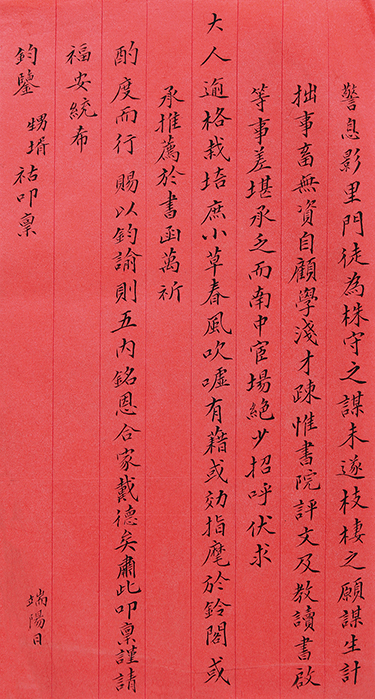 警息影里門徒為株守之謀未遂枝棲之願謀生計
拙事畜無資自顧學淺才疎惟書院評文及教讀書啟
等事差堪承乏而南中宦場絕少招呼伏求
大人逾格栽培庶小草春風吹噓有藉或効指麾於鈴閣或
承推薦於書函萬祈
酌度而行賜以鈞諭則五內銘恩合家戴德矣肅此叩稟謹請
福安統布
鈞鑒 甥壻祜叩稟
端陽日